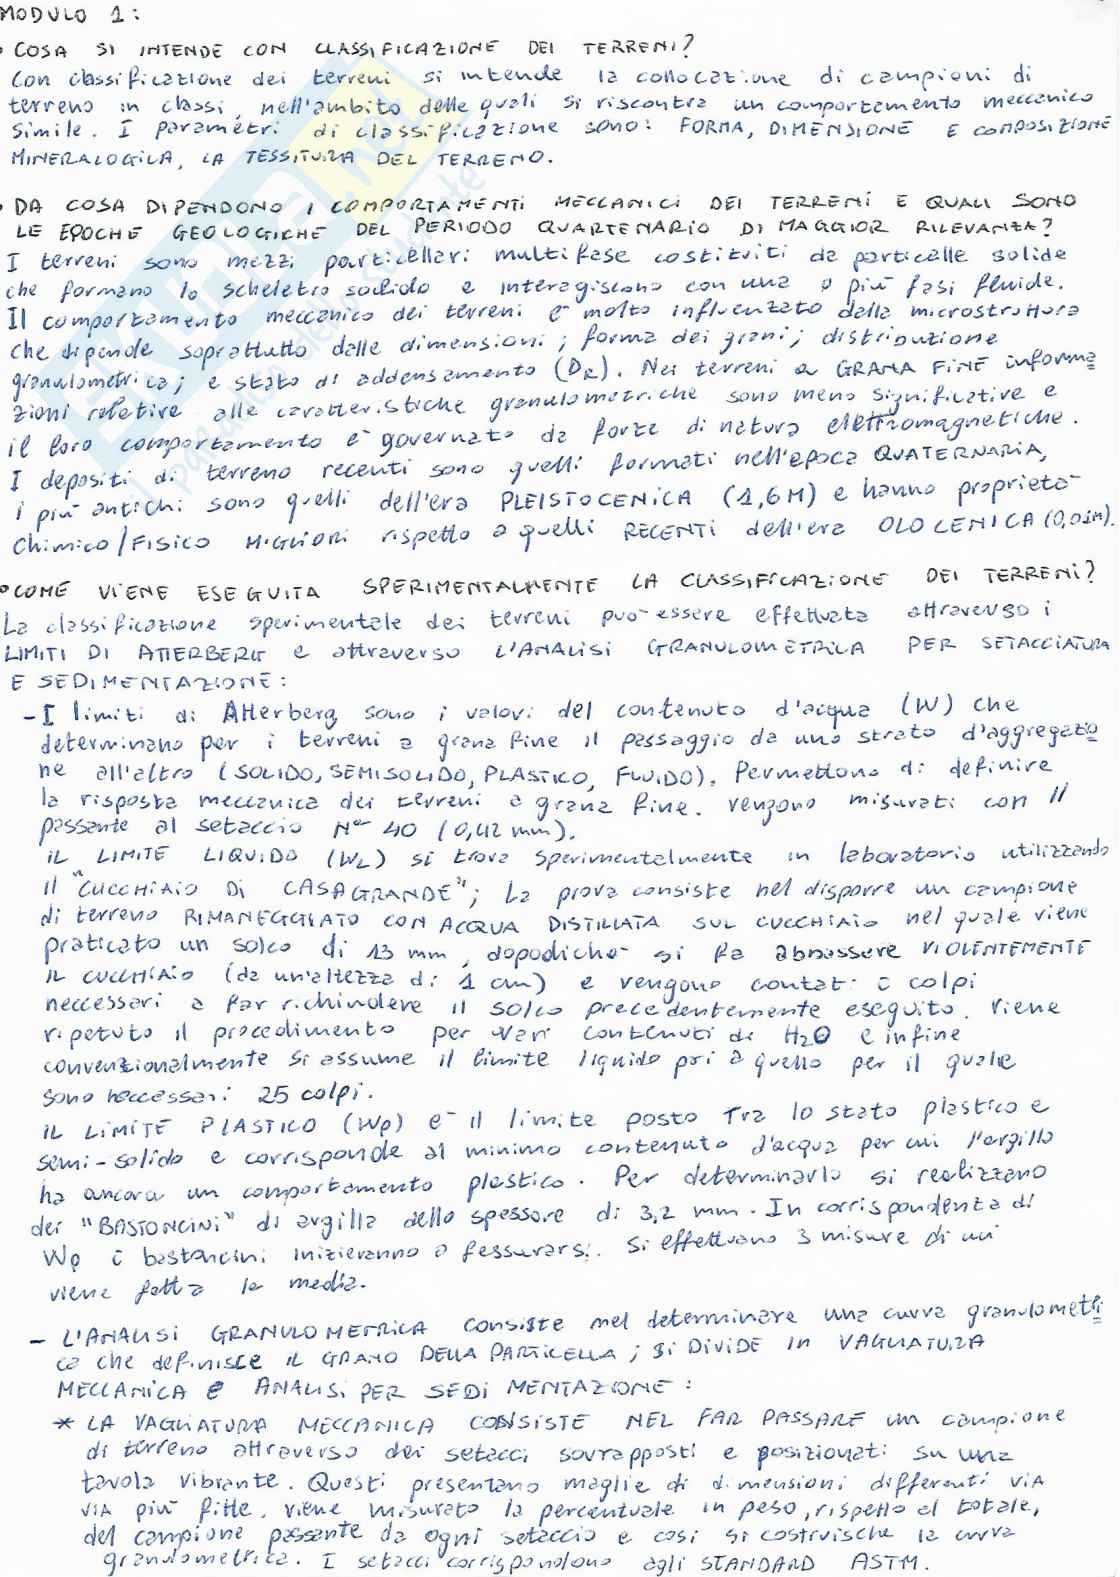 MODULO 1:
• COSA SI INTENDE CON CLASSIFICAZIONE DEI TERRENI?
Con classificazione dei terreni si intende la collocazione di campioni di
terreno in classi, nell'ambito delle quali si riscontra un comportamento meccanico
simile. I parametri di classificazione sono: FORMA, DIMENSIONE E COMPOSIZIONE
MINERALOGICA, LA TESSITURA DEL TERRENO.
• DA COSA DIPENDONO I COMPORTAMENTI MECCANICI DEI TERRENI E QUALI SONO
LE EPOCHE GEOLOGICHE DEL PERIODO QUARTENARIO DI MAGGIOR RILEVANZA?
I terreni sono mezzi particellari multifase costituiti da particelle solide
che formano lo scheletro solido e interagiscono con una o più fasi fluide.
Il comportamento meccanico dei terreni è molto influenzato dalla microstruttura
che dipende soprattutto dalle dimensioni; forma dei grani; distribuzione
granulometrica; e stato di addensamento (DR). Nei terreni a GRANA FINE informa
zioni relative alle caratteristiche granulometriche sono meno significative e
il loro comportamento è governato da forze di natura elettromagnetiche.
I depositi di terreno recenti sono quelli formati nell'epoca QUATERNARIA,
i più antichi sono quelli dell'era PLEISTOCENICA (1,6M) e hanno proprietà
Chimico/FISICO MIGLIORI rispetto a quelli RECENTI dell'era OLOCENICA (0,01M).
• COME VIENE ESEGUITA SPERIMENTALMENTE LA CLASSIFICAZIONE DEI TERRENI?
La classificazione sperimentale dei terreni può essere effettuata attraverso i
LIMITI DI ATTERBERG e attraverso L'ANALISI GRANULOMETRICA PER SETACCIATURA
E SEDIMENTAZIONE:
- I limiti di Atterberg sono i valori del contenuto d'acqua (W) che
determinano per i terreni a grana fine il passaggio da uno strato d'aggregazio
ne all'altro (SOLIDO, SEMISOLIDO, PLASTICO, FLUIDO). Permettono di definire
la risposta meccanica dei terreni a grana fine. vengono misurati con il
passante al setaccio N° 40 (0,42 mm).
IL LIMITE LIQUIDO (WL) si trova sperimentalmente in laboratorio utilizzando
il "CUCCHIAIO DI CASAGRANDE"; La prova consiste nel disporre un campione
di terreno RIMANEGGIATO CON ACQUA DISTILLATA SUL CUCCHIAIO nel quale viene
praticato un solco di 13 mm, dopodiché si fa abbassere VIOLENTEMENTE
IL CUCCHIAIO (da un'altezza di 1 cm) e vengono contati i colpi
neccessari a far richiudere il solco precedentemente eseguito. Viene
ripetuto il procedimento per vari contenuti di H2O e infine
convenzionalmente si assume il limite liquido pari a quello per il quale
sono neccessari 25 colpi.
IL LIMITE PLASTICO (Wp) è il limite posto Tra lo stato plastico e
semi-solido e corrisponde al minimo contenuto d'acqua per cui l'argilla
ha ancora un comportamento plastico. Per determinarlo si realizzano
dei "BASTONCINI" di argilla dello spessore di 3,2 mm. In corrispondenza di
Wp i bastoncini inizieranno a fessurarsi. Si effettuano 3 misure di cui
viene fatta la media.
- L'ANALISI GRANULOMETRICA consiste nel determinare una curva granulometri
ca che definisce IL GRANO DELLA PARTICELLA; SI DIVIDE IN VAGLIATURA
MECCANICA E ANALISI PER SEDIMENTAZIONE:
* LA VAGLIATURA MECCANICA CONSISTE NEL FAR PASSARE un campione
di terreno attraverso dei setacci sovrapposti e posizionati su una
tavola vibrante. Questi presentano maglie di dimensioni differenti VIA
VIA più fitte. viene misurato la percentuale in peso, rispetto al totale,
del campione passante da ogni setaccio e così si costruische la curva
granulometrica. I setacci corrispondono agli STANDARD ASTM.